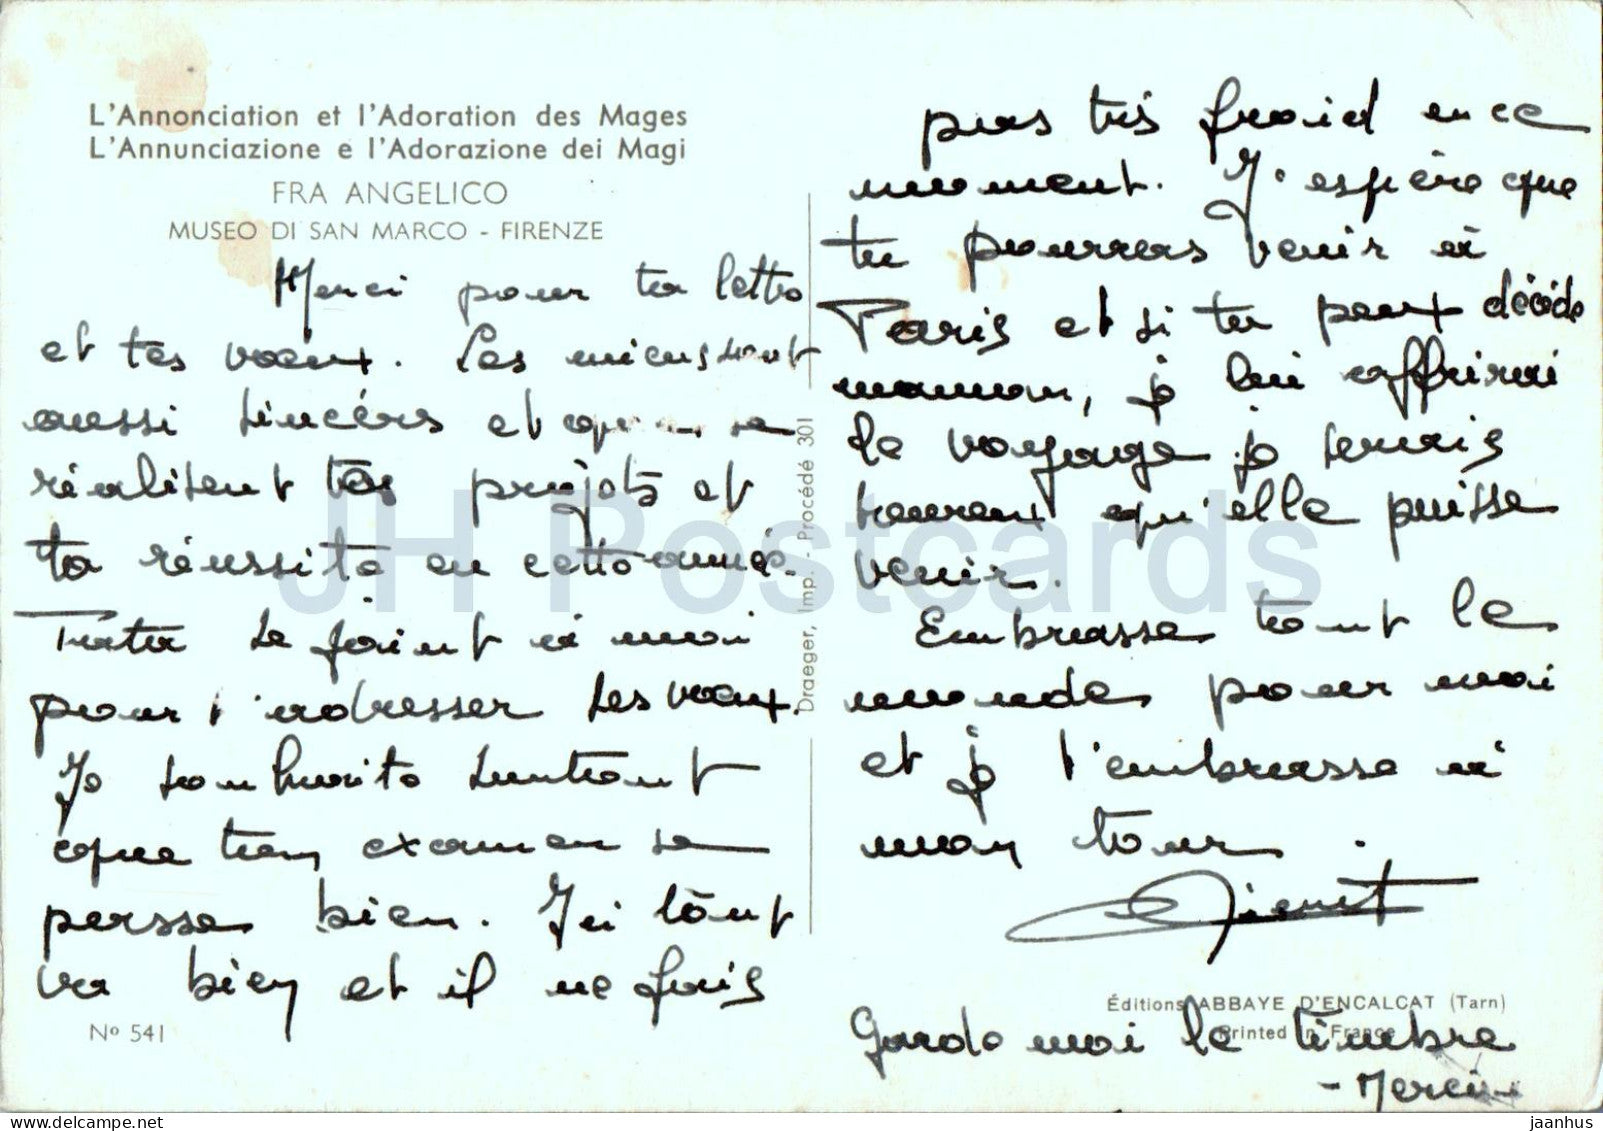 L'Annonciation et l'Adoration des Mages
L'Annunciazione e l'Adorazione dei Magi
FRA ANGELICO
MUSEO DI SAN MARCO - FIRENZE
Merci pour ta lettre
et tes voeux. Les miens sont
aussi sincéres et que se
réalisent tes projets et
ta réussite en cette année.
Tata se joint à moi
pour t'adresser ses voeux.
Je souhaite surtout
que ton examen se
passe bien. Ici tout
va bien et il ne fais
Nº 541
Draeger, Imp. - Procédé 301
pas très froid en ce
moment. J'espère que
tu pourras venir à
Paris et si tu peux décide
maman, je lui offrirai
le voyage je serais
heureux qu'elle puisse
venir.
Embrasse tout le
monde pour moi
et je t'embrasse à
mon tour.
Éditions ABBAYE D'ENCALCAT (Tarn)
Printed in France
Garde moi le timbre
- Merci -
JH Postcards
delcampe.net
jaanhus